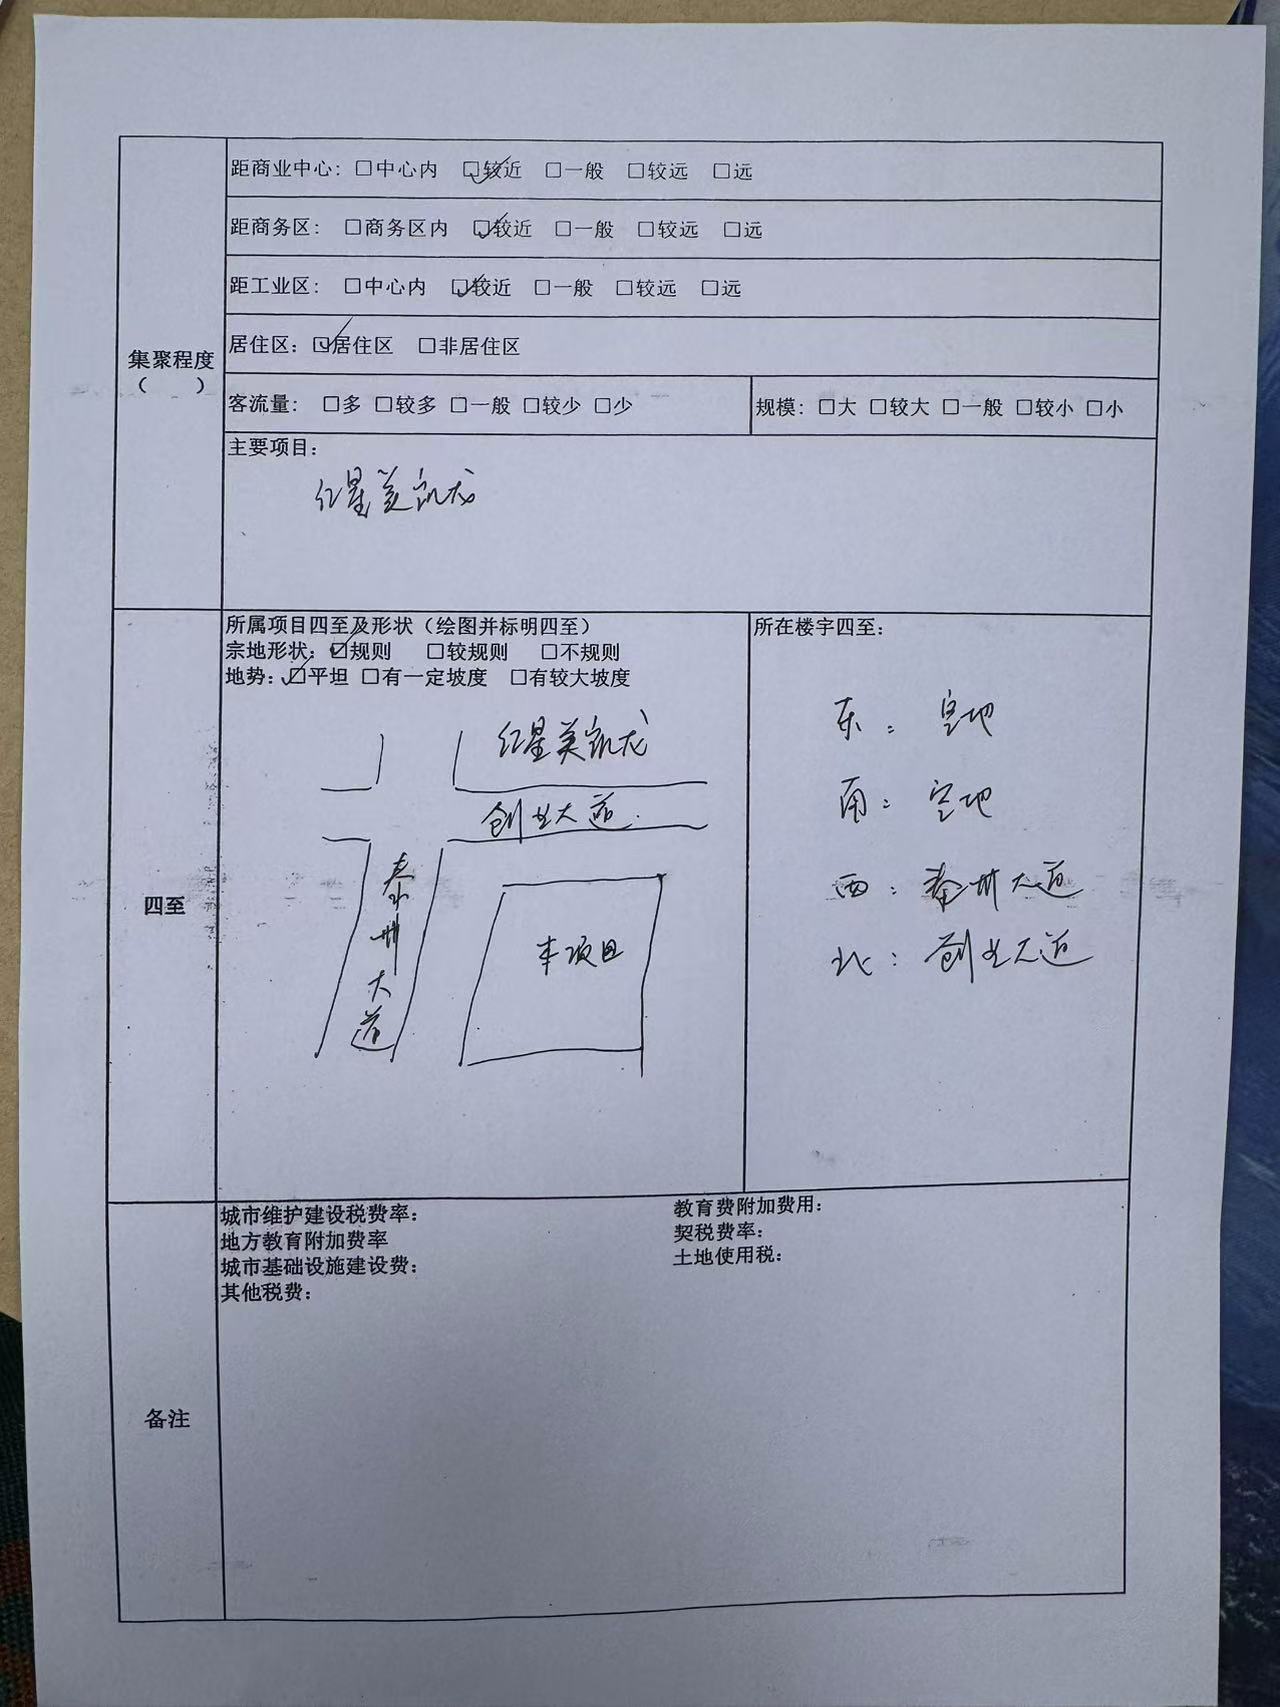 距商业中心：□中心内 ☑较近 □一般 □较远 □远
距商务区： □商务区内 ☑较近 □一般 □较远 □远
距工业区： □中心内 ☑较近 □一般 □较远 □远
居住区：☑居住区 □非居住区
集聚程度
（ ）
客流量： □多 □较多 □一般 □较少 □少
规模：□大 □较大 □一般 □较小 □小
主要项目：
红星美凯龙
四至
所属项目四至及形状（绘图并标明四至）
宗地形状：☑规则 □较规则 □不规则
地势：☑平坦 □有一定坡度 □有较大坡度
红星美凯龙
创业大道
泰州大道
本项目
所在楼宇四至：
东：空地
南：空地
西：泰州大道
北：创业大道
备注
城市维护建设税费率：
地方教育附加费率
城市基础设施建设费：
其他税费：
教育费附加费用：
契税费率：
土地使用税：